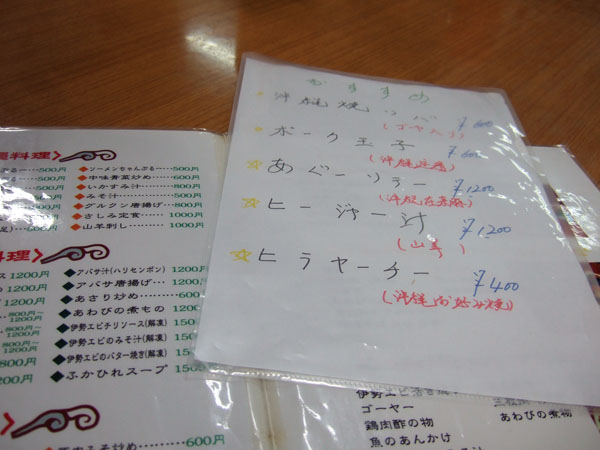 おすすめ
沖縄焼ソバ ¥600
(ゴーヤ入り)
ポーク玉子 ¥600
あぐーソラー ¥1200
ヒージャー汁 ¥1200
(山羊)
ヒラヤーチー ¥400
(沖縄お好み焼)
料理
500円 ソーメンちゃんぷるー 500円
500円 中味青菜炒め 600円
500円 いかすみ汁 800円
500円 みそ汁 500円
500円 グルクン唐揚げ 800円
800円 さしみ定食 1000円
800円 山羊刺し 1000円
料理
1200円 アバサ汁(ハリセンボン) 1200
1200円 アバサ唐揚げ 1200
1200円 あさり炒め
あわびの煮もの
伊勢エビチリソース(解凍) 150
伊勢エビのみそ汁(解凍) 150
800円 伊勢エビのバター焼き(解凍) 150
1200円 ふかひれスープ 150
600円
伊勢エビ
ゴーヤー
鶏肉酢の物
魚のあんかけ
あわびの煮物